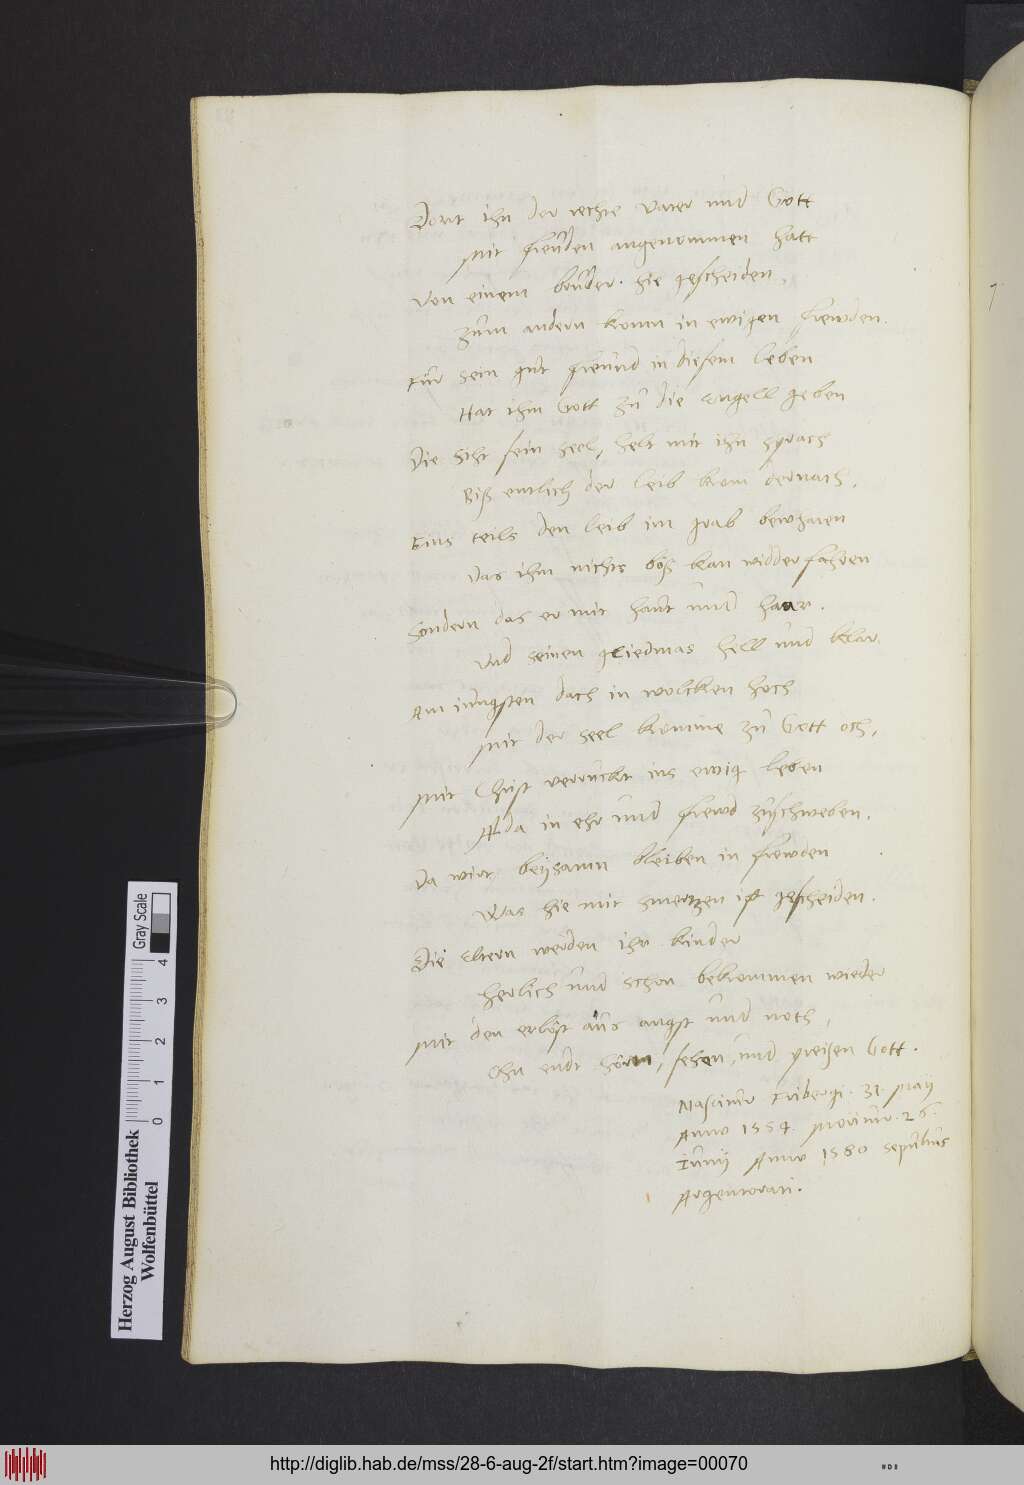 Dort ihn der rechte Vater und Gott
Mit freuden angenommen hatt
Von einem bruder hie gescheiden,
Zum andern komn in ewigen frewden.
Für sein gut freund in diesem leben
Hat ihm Gott zu die Engell geben
Die Siht sein seel, helt mit ihn sprach
Biß entlich der leib kom dernach,
Eins teils den leib im grab bewharen
Das ihm nichts böß kan widderfahren
Sondern das er mit haut und haar.
Und seinen gliedmas hell und klar
Am jungsten dach in wolcken hoch
Mit der seel komme zu Gott och,
Mit Christ verruckt ins ewig leben
Alda in ehr und frewd zuschweben.
Da wirt beysamn bleiben in frewden
Was hie mit smertzen ist gescheiden.
Die Eltern werden ihr kinder
herlich und schon bekommen wieder
Mit den erlöst aus angst und noth,
Ohn endt hörn, sehen, und preisen Gott.
Nascitur Fribergi. 31. Maij
Anno 1554. Moritur. 26.
Junij Anno 1580 sepultus
Argentorati.
Herzog August Bibliothek
Wolfenbüttel
0 1 2 3 4
Gray Scale
http://diglib.hab.de/mss/28-6-aug-2f/start.htm?image=00070